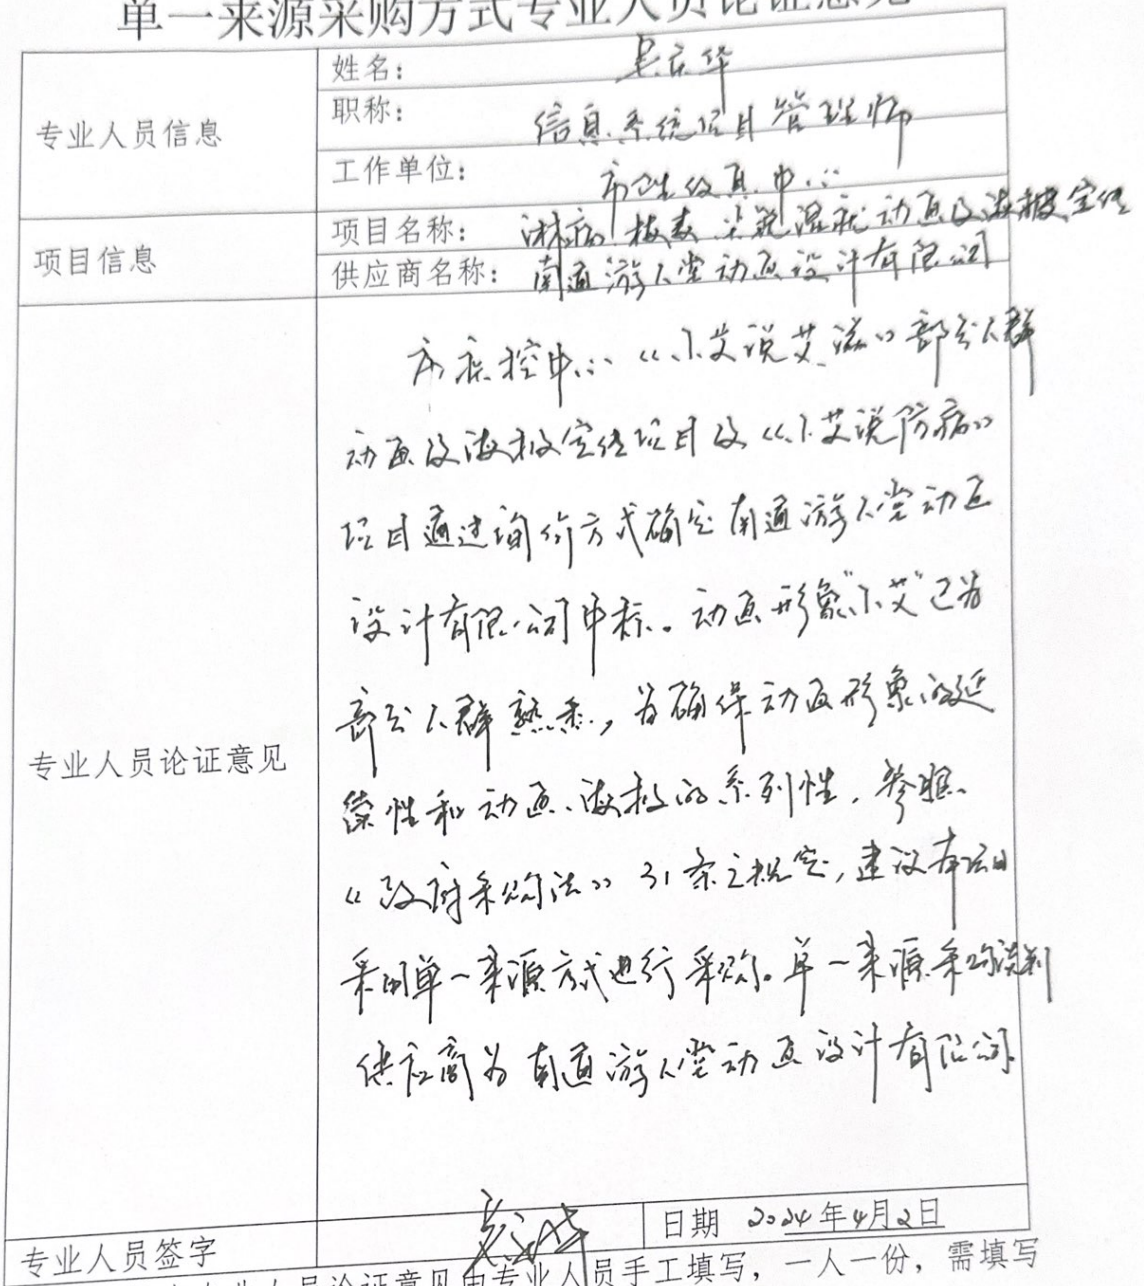 单一来源采购方式专业人员论证意见
专业人员信息
姓名：
职称： 信息系统项目管理师
工作单位： 市卫生信息中心
项目信息
项目名称： 淋病、梅毒、尖锐湿疣动画及海报宣传
供应商名称： 南通游人堂动画设计有限公司
专业人员论证意见
市疾控中心《小艾说艾滋》部分人群
动画及海报宣传项目及《小艾说防病》
项目通过询价方式确定南通游人堂动画
设计有限公司中标。动画形象"小艾"已为
部分人群熟悉，为确保动画形象的延
续性和动画、海报的系列性，参照
《政府采购法》31条之规定，建议本项目
采用单一来源方式进行采购。单一来源采购谈判
供应商为南通游人堂动画设计有限公司
专业人员签字
日期 2024年4月2日
专业人员论证意见由专业人员手工填写，一人一份，需填写